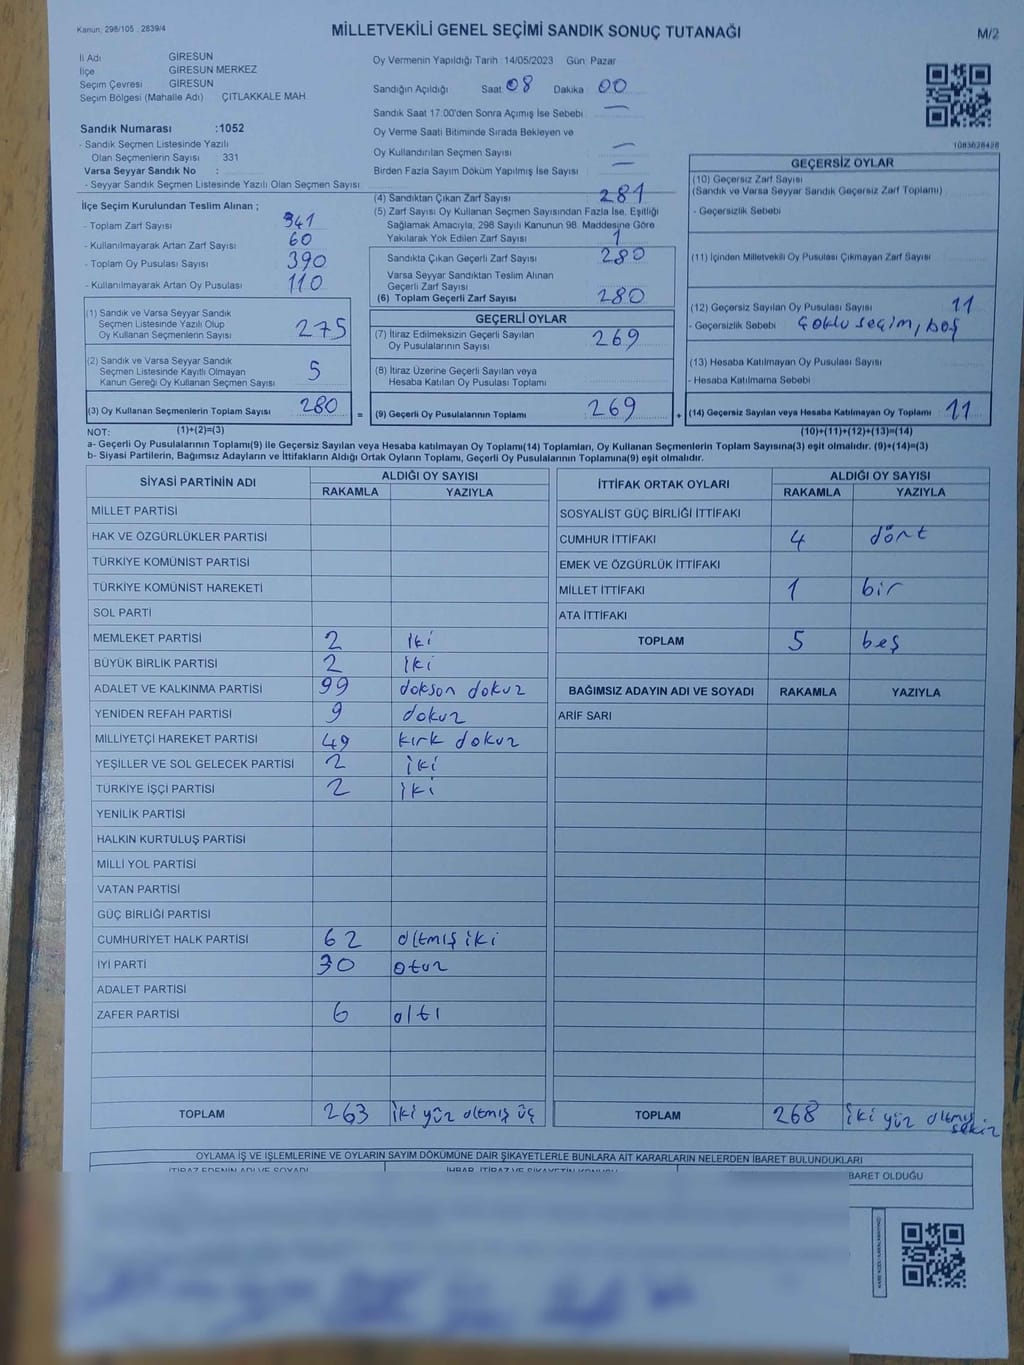 Kanun: 298/105 , 2839/4
MİLLETVEKİLİ GENEL SEÇİMİ SANDIK SONUÇ TUTANAĞI
M/2
İl Adı GİRESUN
İlçe GİRESUN MERKEZ
Seçim Çevresi GİRESUN
Seçim Bölgesi (Mahalle Adı) ÇITLAKKALE MAH
Sandık Numarası :1052
- Sandık Seçmen Listesinde Yazılı
Olan Seçmenlerin Sayısı : 331
Varsa Seyyar Sandık No :
- Seyyar Sandık Seçmen Listesinde Yazılı Olan Seçmen Sayısı
İlçe Seçim Kurulundan Teslim Alınan ;
- Toplam Zarf Sayısı 341
- Kullanılmayarak Artan Zarf Sayısı 60
- Toplam Oy Pusulası Sayısı 390
- Kullanılmayarak Artan Oy Pusulası 110
(1) Sandık ve Varsa Seyyar Sandık
Seçmen Listesinde Yazılı Olup
Oy Kullanan Seçmenlerin Sayısı 275
(2) Sandık ve Varsa Seyyar Sandık
Seçmen Listesinde Kayıtlı Olmayan
Kanun Gereği Oy Kullanan Seçmen Sayısı 5
(3) Oy Kullanan Seçmenlerin Toplam Sayısı 280 =
Oy Vermenin Yapıldığı Tarih : 14/05/2023 Gün: Pazar
Sandığın Açıldığı Saat: 08 Dakika 00
Sandık Saat 17:00'den Sonra Açımış İse Sebebi —
Oy Verme Saati Bitiminde Sırada Bekleyen ve
Oy Kullandırılan Seçmen Sayısı —
Birden Fazla Sayım Döküm Yapılmış İse Sayısı —
(4) Sandıktan Çıkan Zarf Sayısı 281
(5) Zarf Sayısı Oy Kullanan Seçmen Sayısından Fazla İse, Eşitliği
Sağlamak Amacıyla, 298 Sayılı Kanunun 98. Maddesine Göre
Yakılarak Yok Edilen Zarf Sayısı 1
Sandıkta Çıkan Geçerli Zarf Sayısı 280
Varsa Seyyar Sandıktan Teslim Alınan
Geçerli Zarf Sayısı
(6) Toplam Geçerli Zarf Sayısı 280
GEÇERLİ OYLAR
(7) İtiraz Edilmeksizin Geçerli Sayılan
Oy Pusulalarının Sayısı 269
(8) İtiraz Üzerine Geçerli Sayılan veya
Hesaba Katılan Oy Pusulası Toplamı
(9) Geçerli Oy Pusulalarının Toplamı 269 +
1083628428
GEÇERSİZ OYLAR
(10) Geçersiz Zarf Sayısı
(Sandık ve Varsa Seyyar Sandık Geçersiz Zarf Toplamı)
- Geçersizlik Sebebi
(11) İçinden Milletvekili Oy Pusulası Çıkmayan Zarf Sayısı
(12) Geçersiz Sayılan Oy Pusulası Sayısı 11
- Geçersizlik Sebebi çoklu seçim, boş
(13) Hesaba Katılmayan Oy Pusulası Sayısı
- Hesaba Katılmama Sebebi
(14) Geçersiz Sayılan veya Hesaba Katılmayan Oy Toplamı 11
NOT: (1)+(2)=(3) (10)+(11)+(12)+(13)=(14)
a- Geçerli Oy Pusulalarının Toplamı(9) ile Geçersiz Sayılan veya Hesaba katılmayan Oy Toplam(14) Toplamları, Oy Kullanan Seçmenlerin Toplam Sayısına(3) eşit olmalıdır. (9)+(14)=(3)
b- Siyasi Partilerin, Bağımsız Adayların ve İttifakların Aldığı Ortak Oyların Toplamı, Geçerli Oy Pusulalarının Toplamına(9) eşit olmalıdır.
SİYASİ PARTİNİN ADI ALDIĞI OY SAYISI
RAKAMLA YAZIYLA
MİLLET PARTİSİ
HAK VE ÖZGÜRLÜKLER PARTİSİ
TÜRKİYE KOMÜNİST PARTİSİ
TÜRKİYE KOMÜNİST HAREKETİ
SOL PARTİ
MEMLEKET PARTİSİ 2 iki
BÜYÜK BİRLİK PARTİSİ 2 iki
ADALET VE KALKINMA PARTİSİ 99 dokson dokuz
YENİDEN REFAH PARTİSİ 9 dokuz
MİLLİYETÇİ HAREKET PARTİSİ 49 kırk dokuz
YEŞİLLER VE SOL GELECEK PARTİSİ 2 iki
TÜRKİYE İŞÇİ PARTİSİ 2 iki
YENİLİK PARTİSİ
HALKIN KURTULUŞ PARTİSİ
MİLLİ YOL PARTİSİ
VATAN PARTİSİ
GÜÇ BİRLİĞİ PARTİSİ
CUMHURİYET HALK PARTİSİ 62 altmış iki
İYİ PARTİ 30 otuz
ADALET PARTİSİ
ZAFER PARTİSİ 6 altı
TOPLAM 263 iki yüz altmış üç
İTTİFAK ORTAK OYLARI ALDIĞI OY SAYISI
RAKAMLA YAZIYLA
SOSYALİST GÜÇ BİRLİĞİ İTTİFAKI
CUMHUR İTTİFAKI 4 dört
EMEK VE ÖZGÜRLÜK İTTİFAKI
MİLLET İTTİFAKI 1 bir
ATA İTTİFAKI
TOPLAM 5 beş
BAĞIMSIZ ADAYIN ADI VE SOYADI RAKAMLA YAZIYLA
ARİF SARI
TOPLAM 268 iki yüz altmış sekiz
OYLAMA İŞ VE İŞLEMLERİNE VE OYLARIN SAYIM DÖKÜMÜNE DAİR ŞİKAYETLERLE BUNLARA AİT KARARLARIN NELERDEN İBARET BULUNDUKLARI
İTİRAZ EDENİN ADI VE SOYADI İHBAR, İTİRAZ VE ŞİKAYETİN KONUSU BARET OLDUĞU